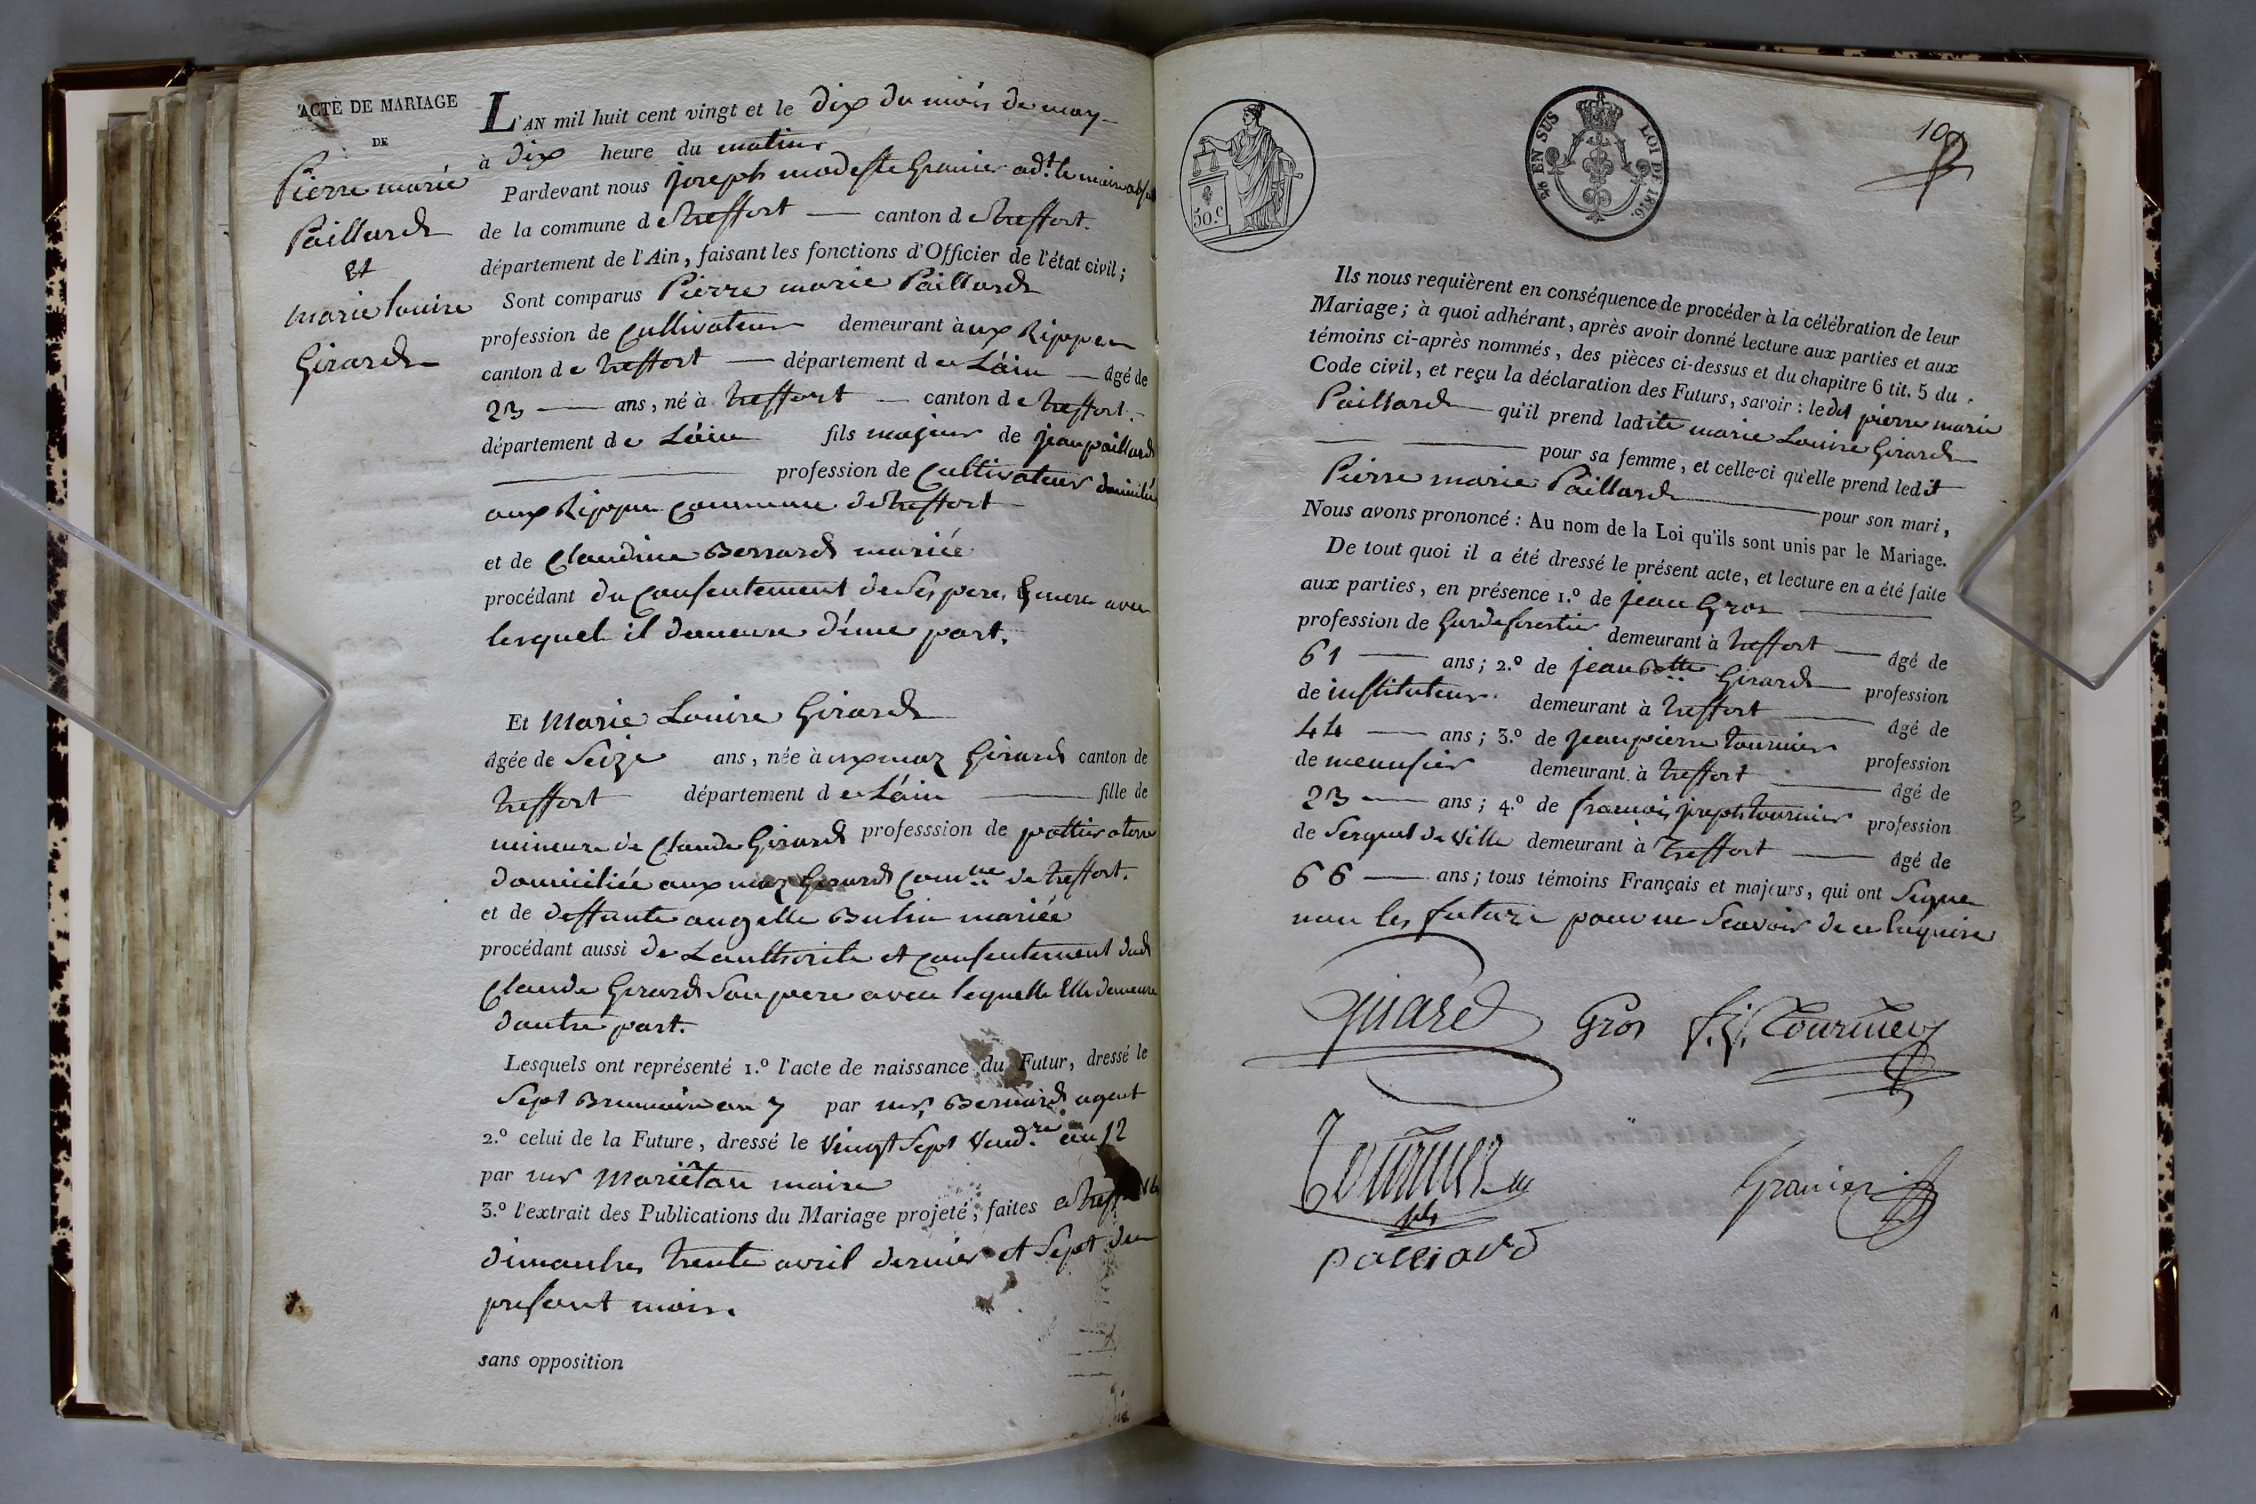 ACTE DE MARIAGE
DE
Pierre marie
Paillard
et
marie louise
Girard
L'AN mil huit cent vingt et le dix du mois de may
à dix heure du matin
Pardevant nous joseph modeste Granier adt. le maire absent
de la commune de treffort canton de treffort.
département de l'Ain, faisant les fonctions d'Officier de l'état civil;
Sont comparus Pierre marie Paillard
profession de Cultivateur demeurant àux Rippes
canton de treffort département de Láin âgé de
23 ans, né à treffort canton de treffort
département de Láin fils majeur de jean paillard
profession de Cultivateur domicilié
aux Rippes commune de treffort
et de Claudine Berrard mariée
procédant du consentement de ses pere & mere avec
lesquel il demeure d'ùne part.
Et Marie Louise Girard
âgée de Seize ans, née àux maz Girard canton de
treffort département de Láin fille de
mineure de Claude Girard professsion de pottier a terre
domiciliée aux maz Girard comne de treffort.
et de deffunte angelle Buhin mariée
procédant aussi de Lauthorite et consentement dud
Claude Girard Son pere avec lequelle Elle demeure
dautre part.
Lesquels ont représenté 1.º l'acte de naissance du Futur, dressé le
Sept Brumaire an 7 par mr. Bernard agent
2.º celui de la Future, dressé le vingt Sept vend.re an 12
par mr Mariétan maire
3.º l'extrait des Publications du Mariage projeté; faites a treffort les
dimanches trente avril dernier et Sept du
present mois.
sans opposition
50.C
¼ EN SUS
LOI DE 1816.
108
Ils nous requièrent en conséquence de procéder à la célébration de leur
Mariage; à quoi adhérant, après avoir donné lecture aux parties et aux
témoins ci-après nommés, des pièces ci-dessus et du chapitre 6 tit. 5 du
Code civil, et reçu la déclaration des Futurs, savoir: ledit pierre marie
Paillard qu'il prend ladite marie Louise Girard
pour sa femme, et celle-ci qu'elle prend ledit
Pierre marie Paillard pour son mari,
Nous avons prononcé: Au nom de la Loi qu'ils sont unis par le Mariage.
De tout quoi il a été dressé le présent acte, et lecture en a été faite
aux parties, en présence 1.º de jean Gros
profession de Garde forestier demeurant à treffort âgé de
61 ans; 2.º de jean Btte Girard profession
de instituteur demeurant à treffort âgé de
44 ans; 3.º de jean pierre tournier profession
de meunsier demeurant à treffort âgé de
23 ans; 4.º de francois joseph tournier profession
de Sergent de ville demeurant à Treffort âgé de
66 ans; tous témoins Français et majeurs, qui ont Signe
non les futurs pour ne Scavoir de ce Enquis
Girard Gros f. j. Tournier
Tournier fils Granier
Pailliard